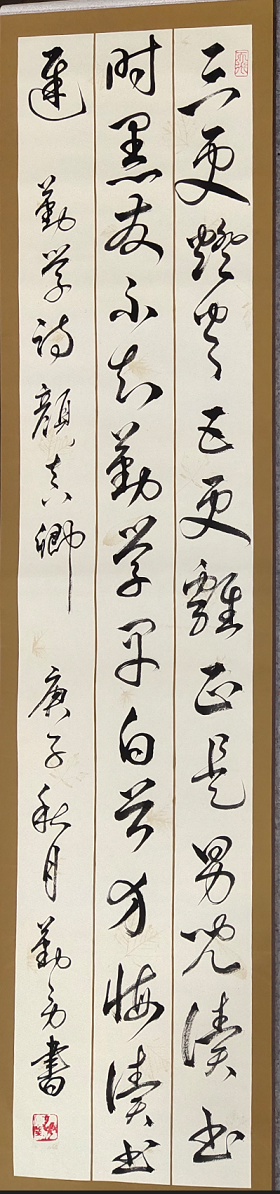 三更燈火五更雞正是男兒讀书
时黑发不知勤学早白首方悔讀书
遲 勤学詩 顏真卿 庚子秋月 勤書